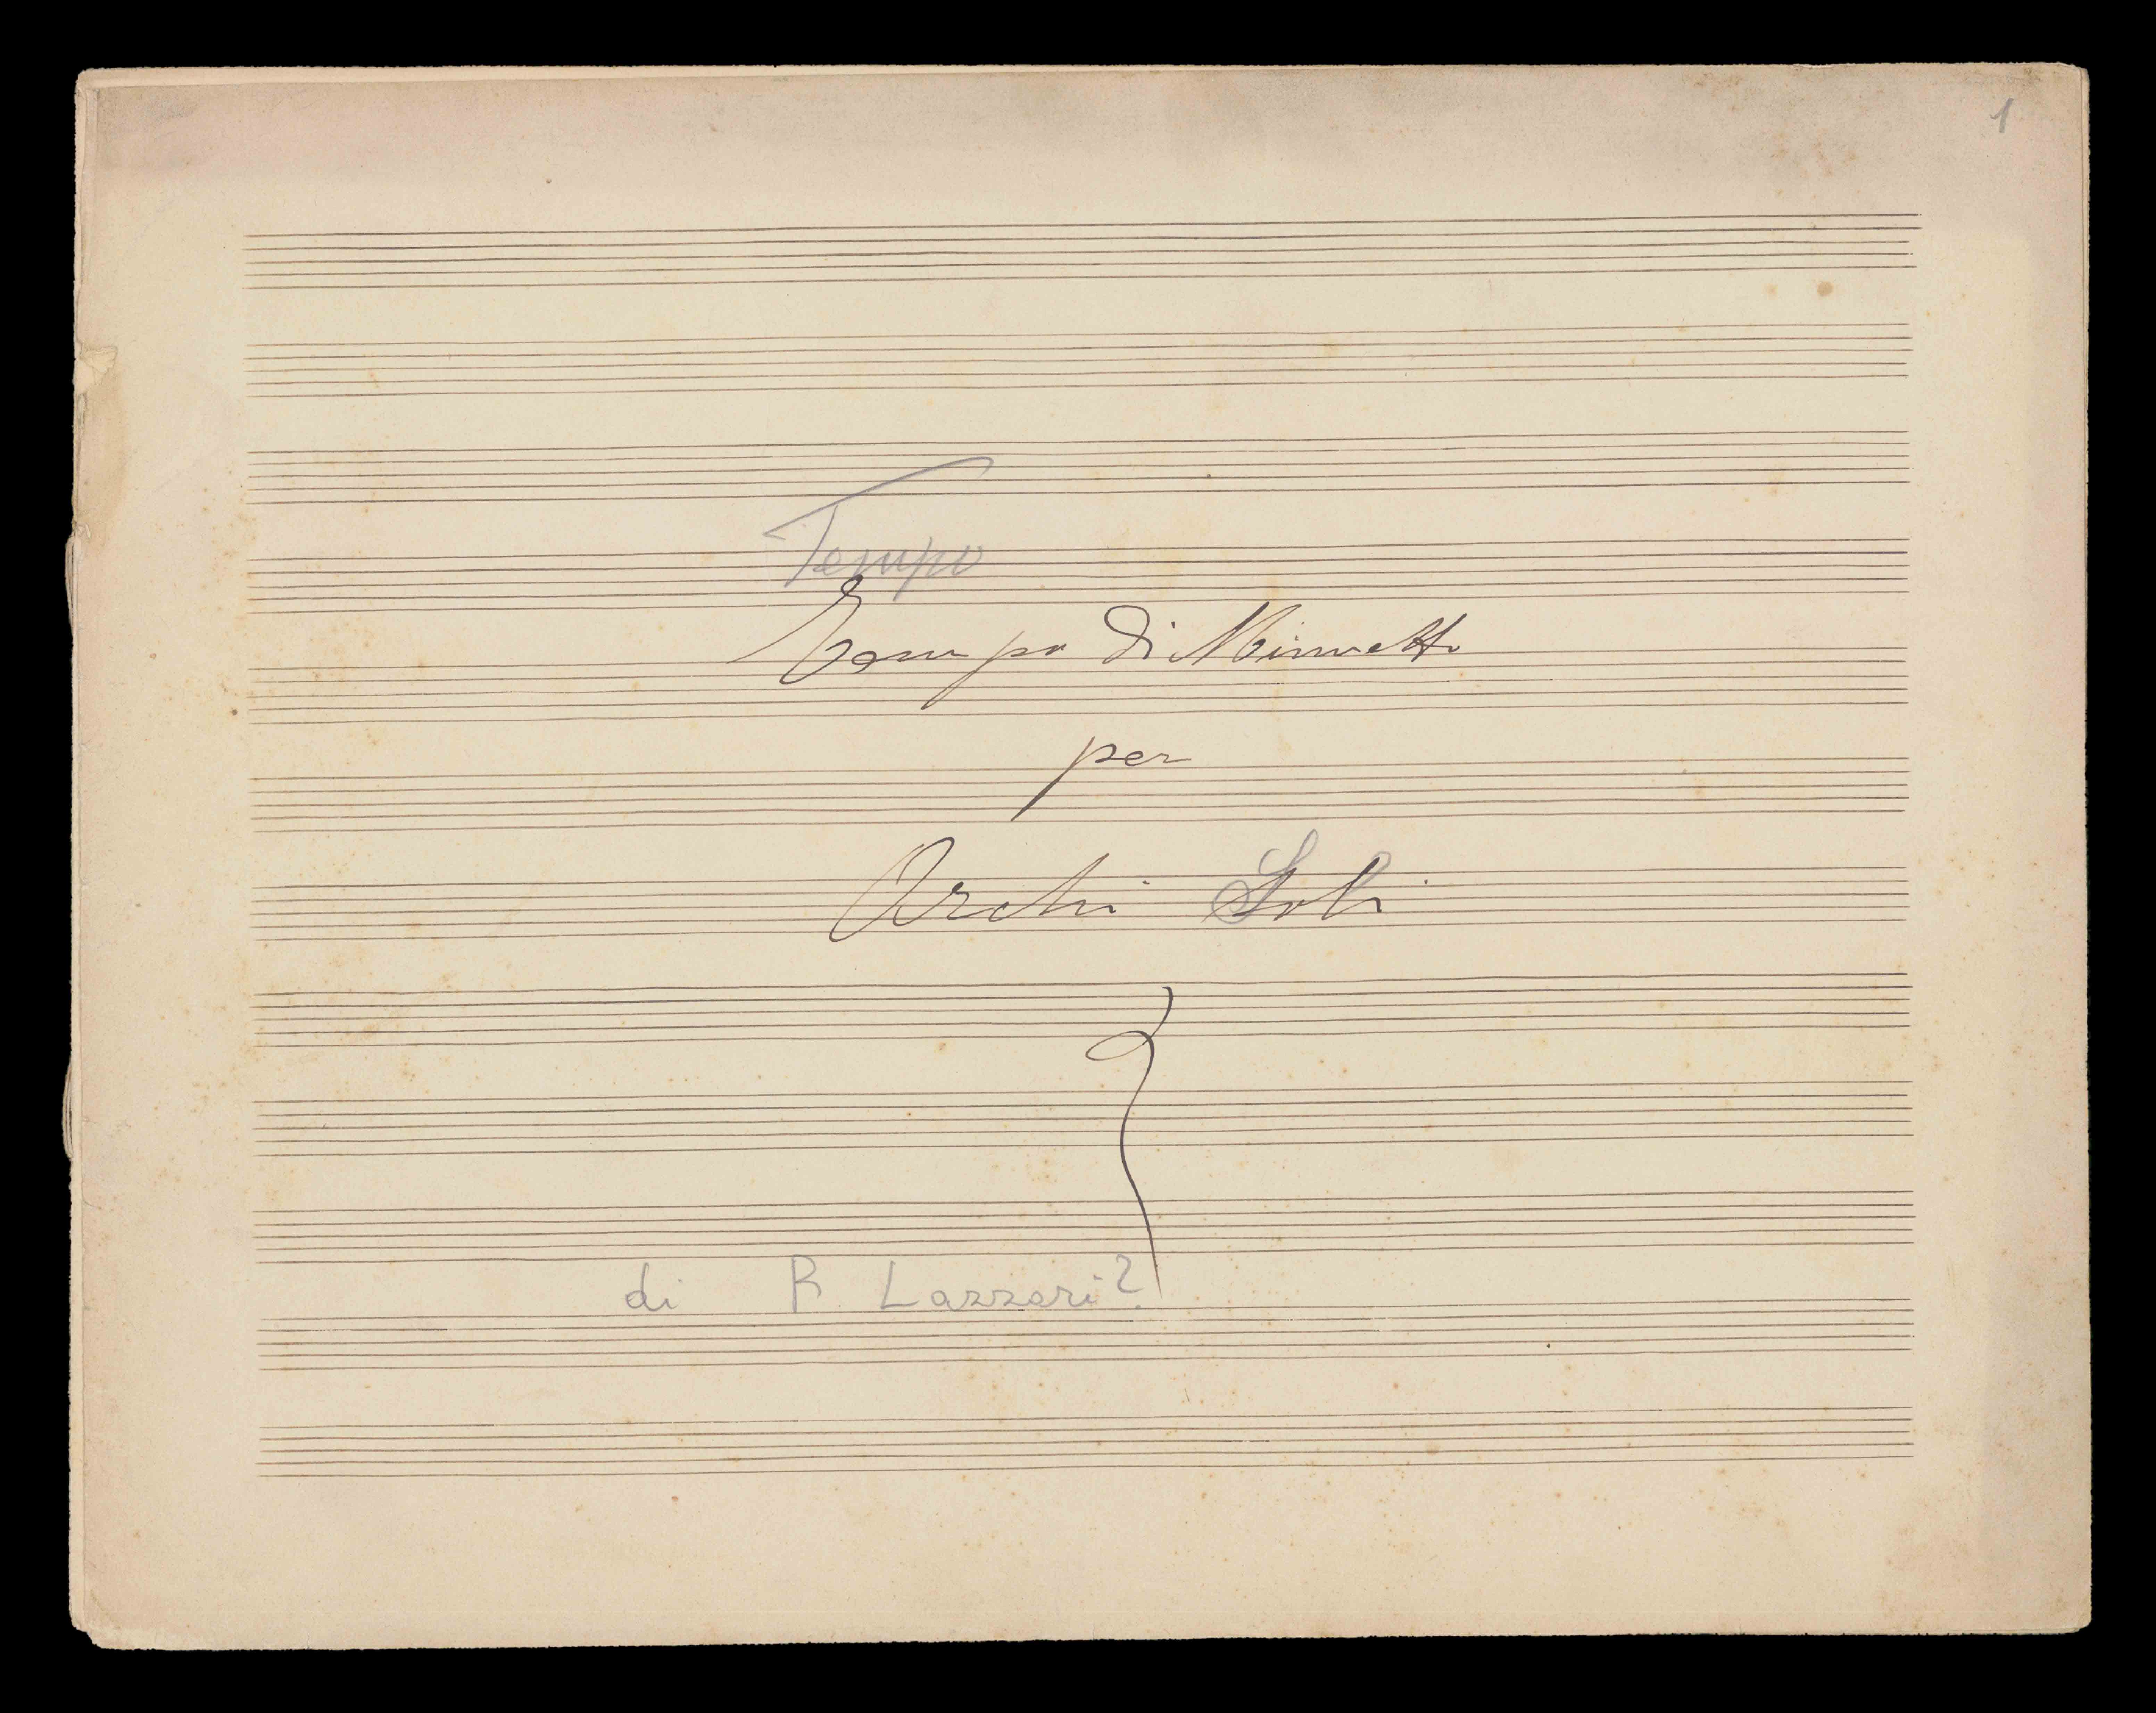 1
Tempo
Tempo di Minuetto
per
Archi Soli
di R. Lazzari?